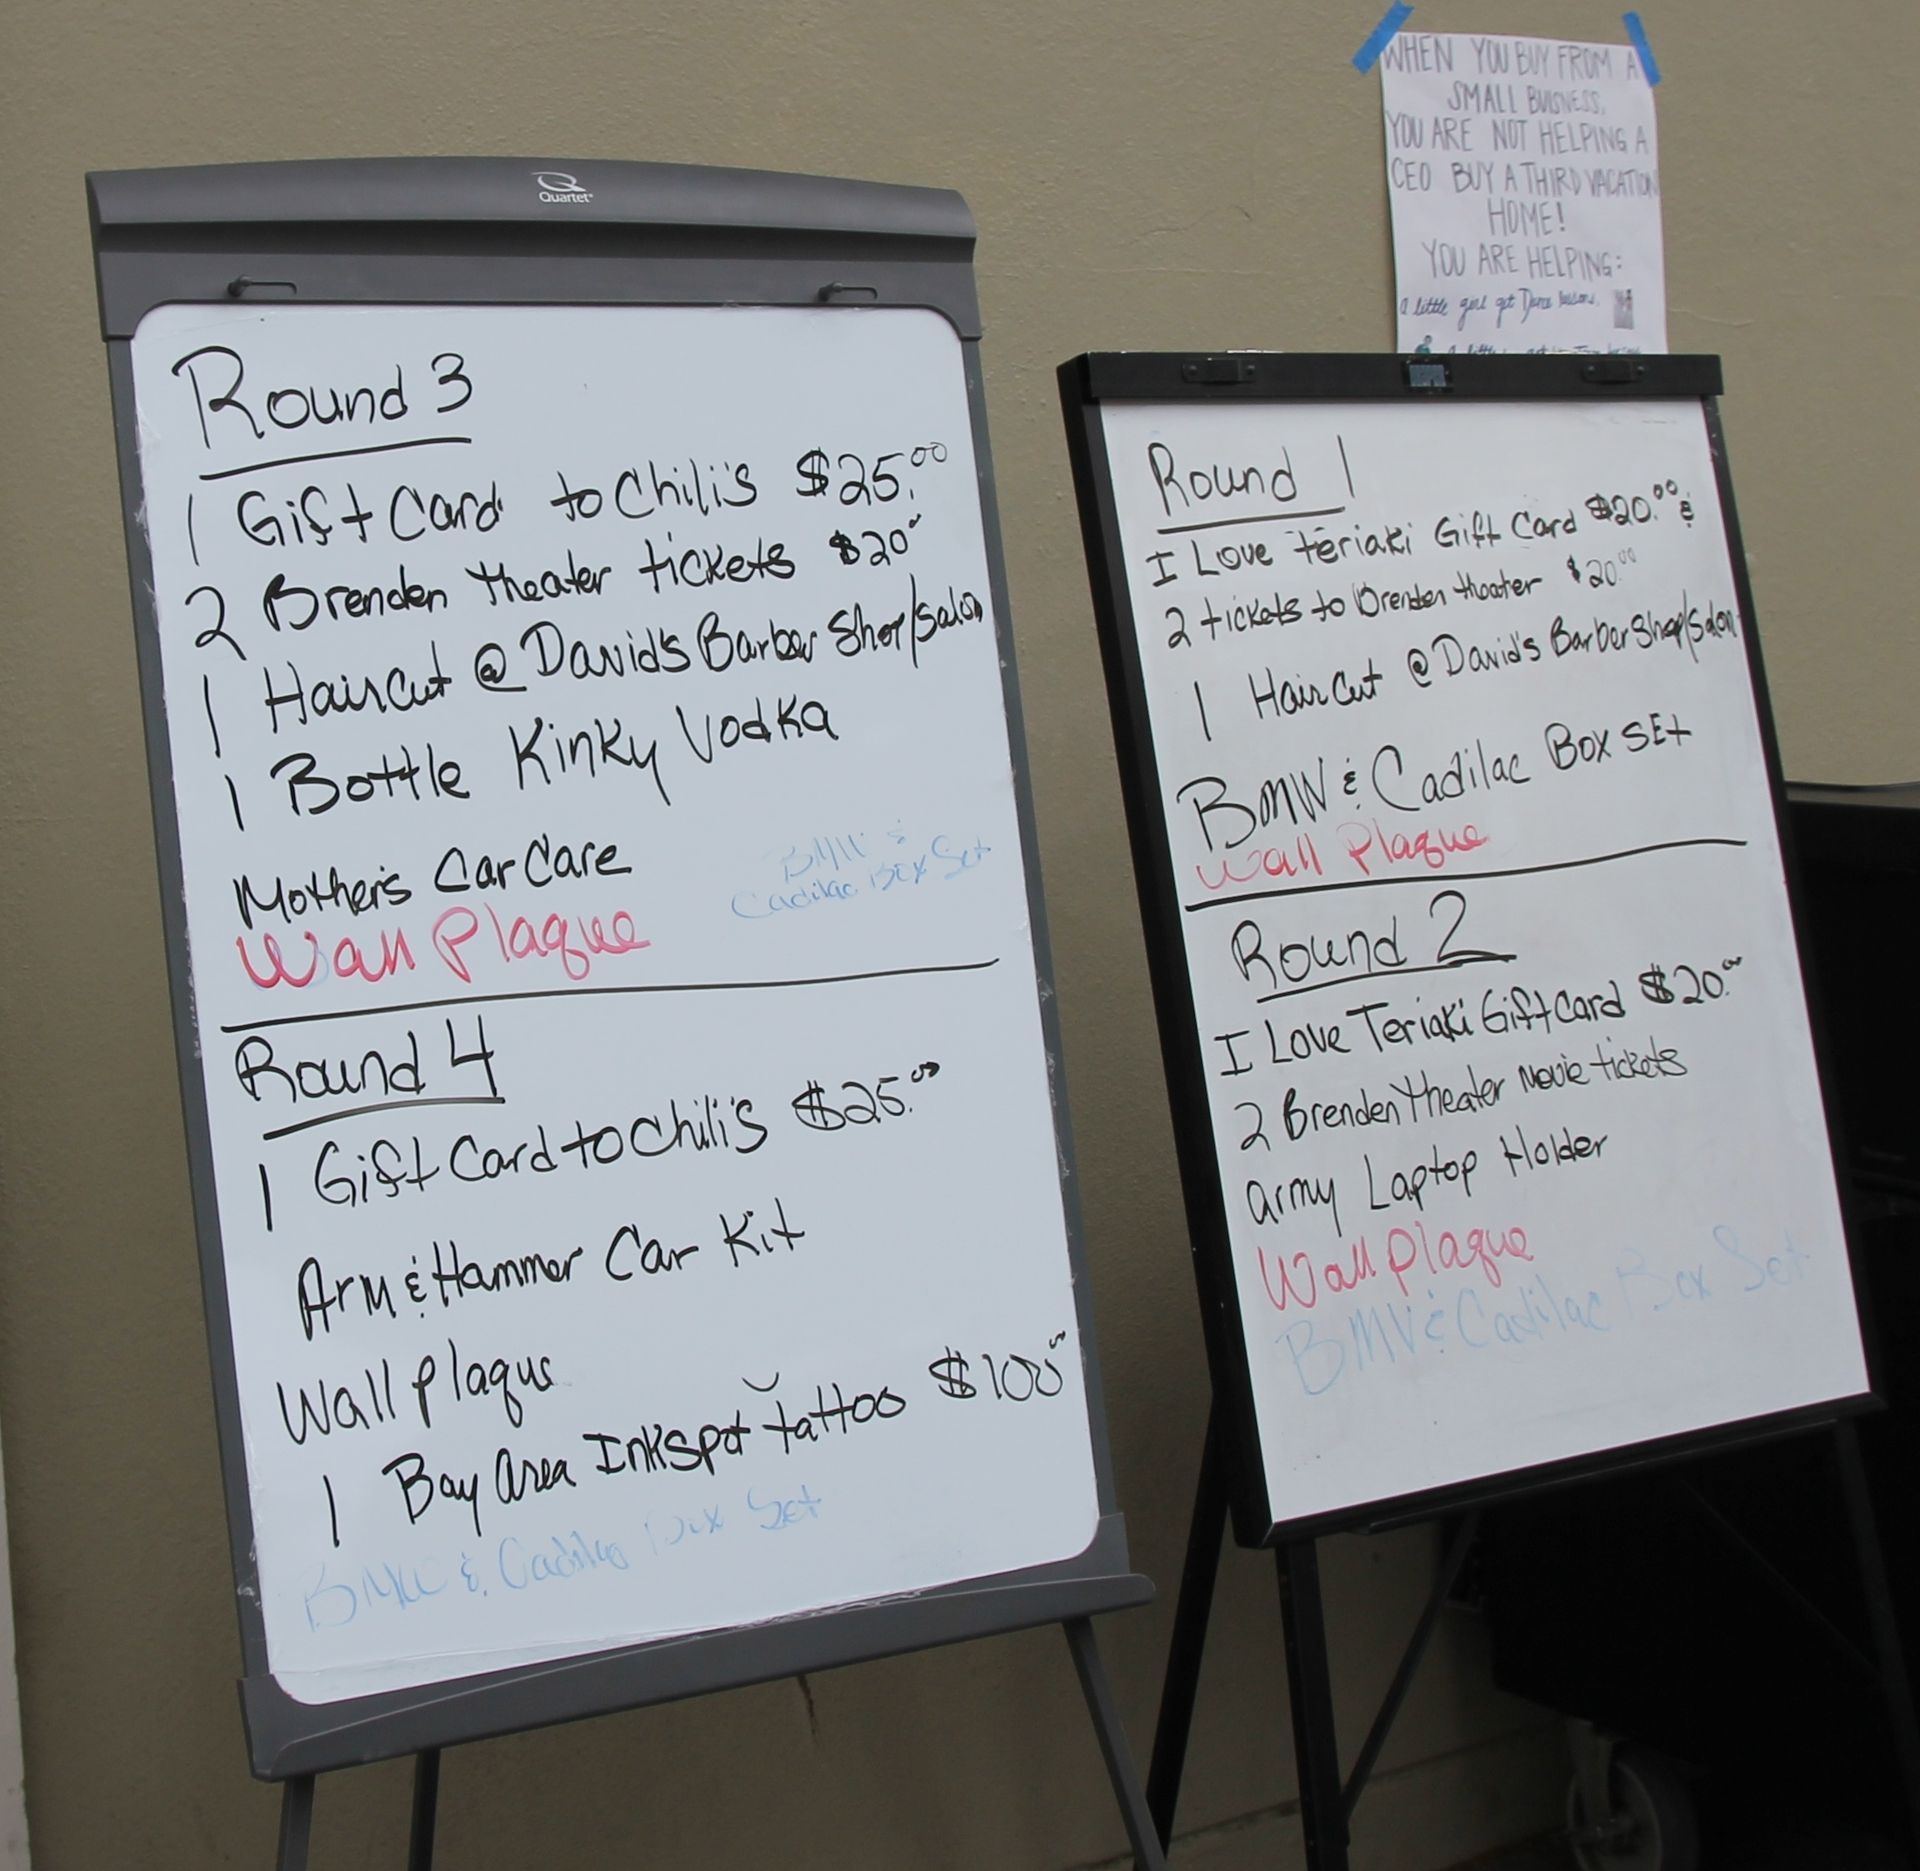 Quartet
Round 3
1 Gift Card to Chili's $25.00
2 Brenden theater tickets $20
1 Haircut @ David's Barber Shop/Salon
1 Bottle Kinky Vodka
Mother's Car Care
BMW &
Cadilac Box Set
Wall Plaque
Round 4
1 Gift Card to Chili's $25.00
Arm & Hammer Car Kit
Wall Plaque
1 Bay Area Inkspot tattoo $100
BMW & Cadilac Box Set
WHEN YOU BUY FROM A
SMALL BUISNESS,
YOU ARE NOT HELPING A
CEO BUY A THIRD VACATION
HOME!
YOU ARE HELPING:
A little girl get Dance lessons.
Round 1
I Love teriaki Gift Card $20.00 &
2 tickets to Brenden theater $20.00
1 Haircut @ David's Barber Shop/Salon
BMW & Cadilac Box SEt
Wall Plaque
Round 2
I Love Teriaki Gift Card $20.00
2 Brenden theater movie tickets
army Laptop Holder
Wall Plaque
BMW & Cadilac Box Set